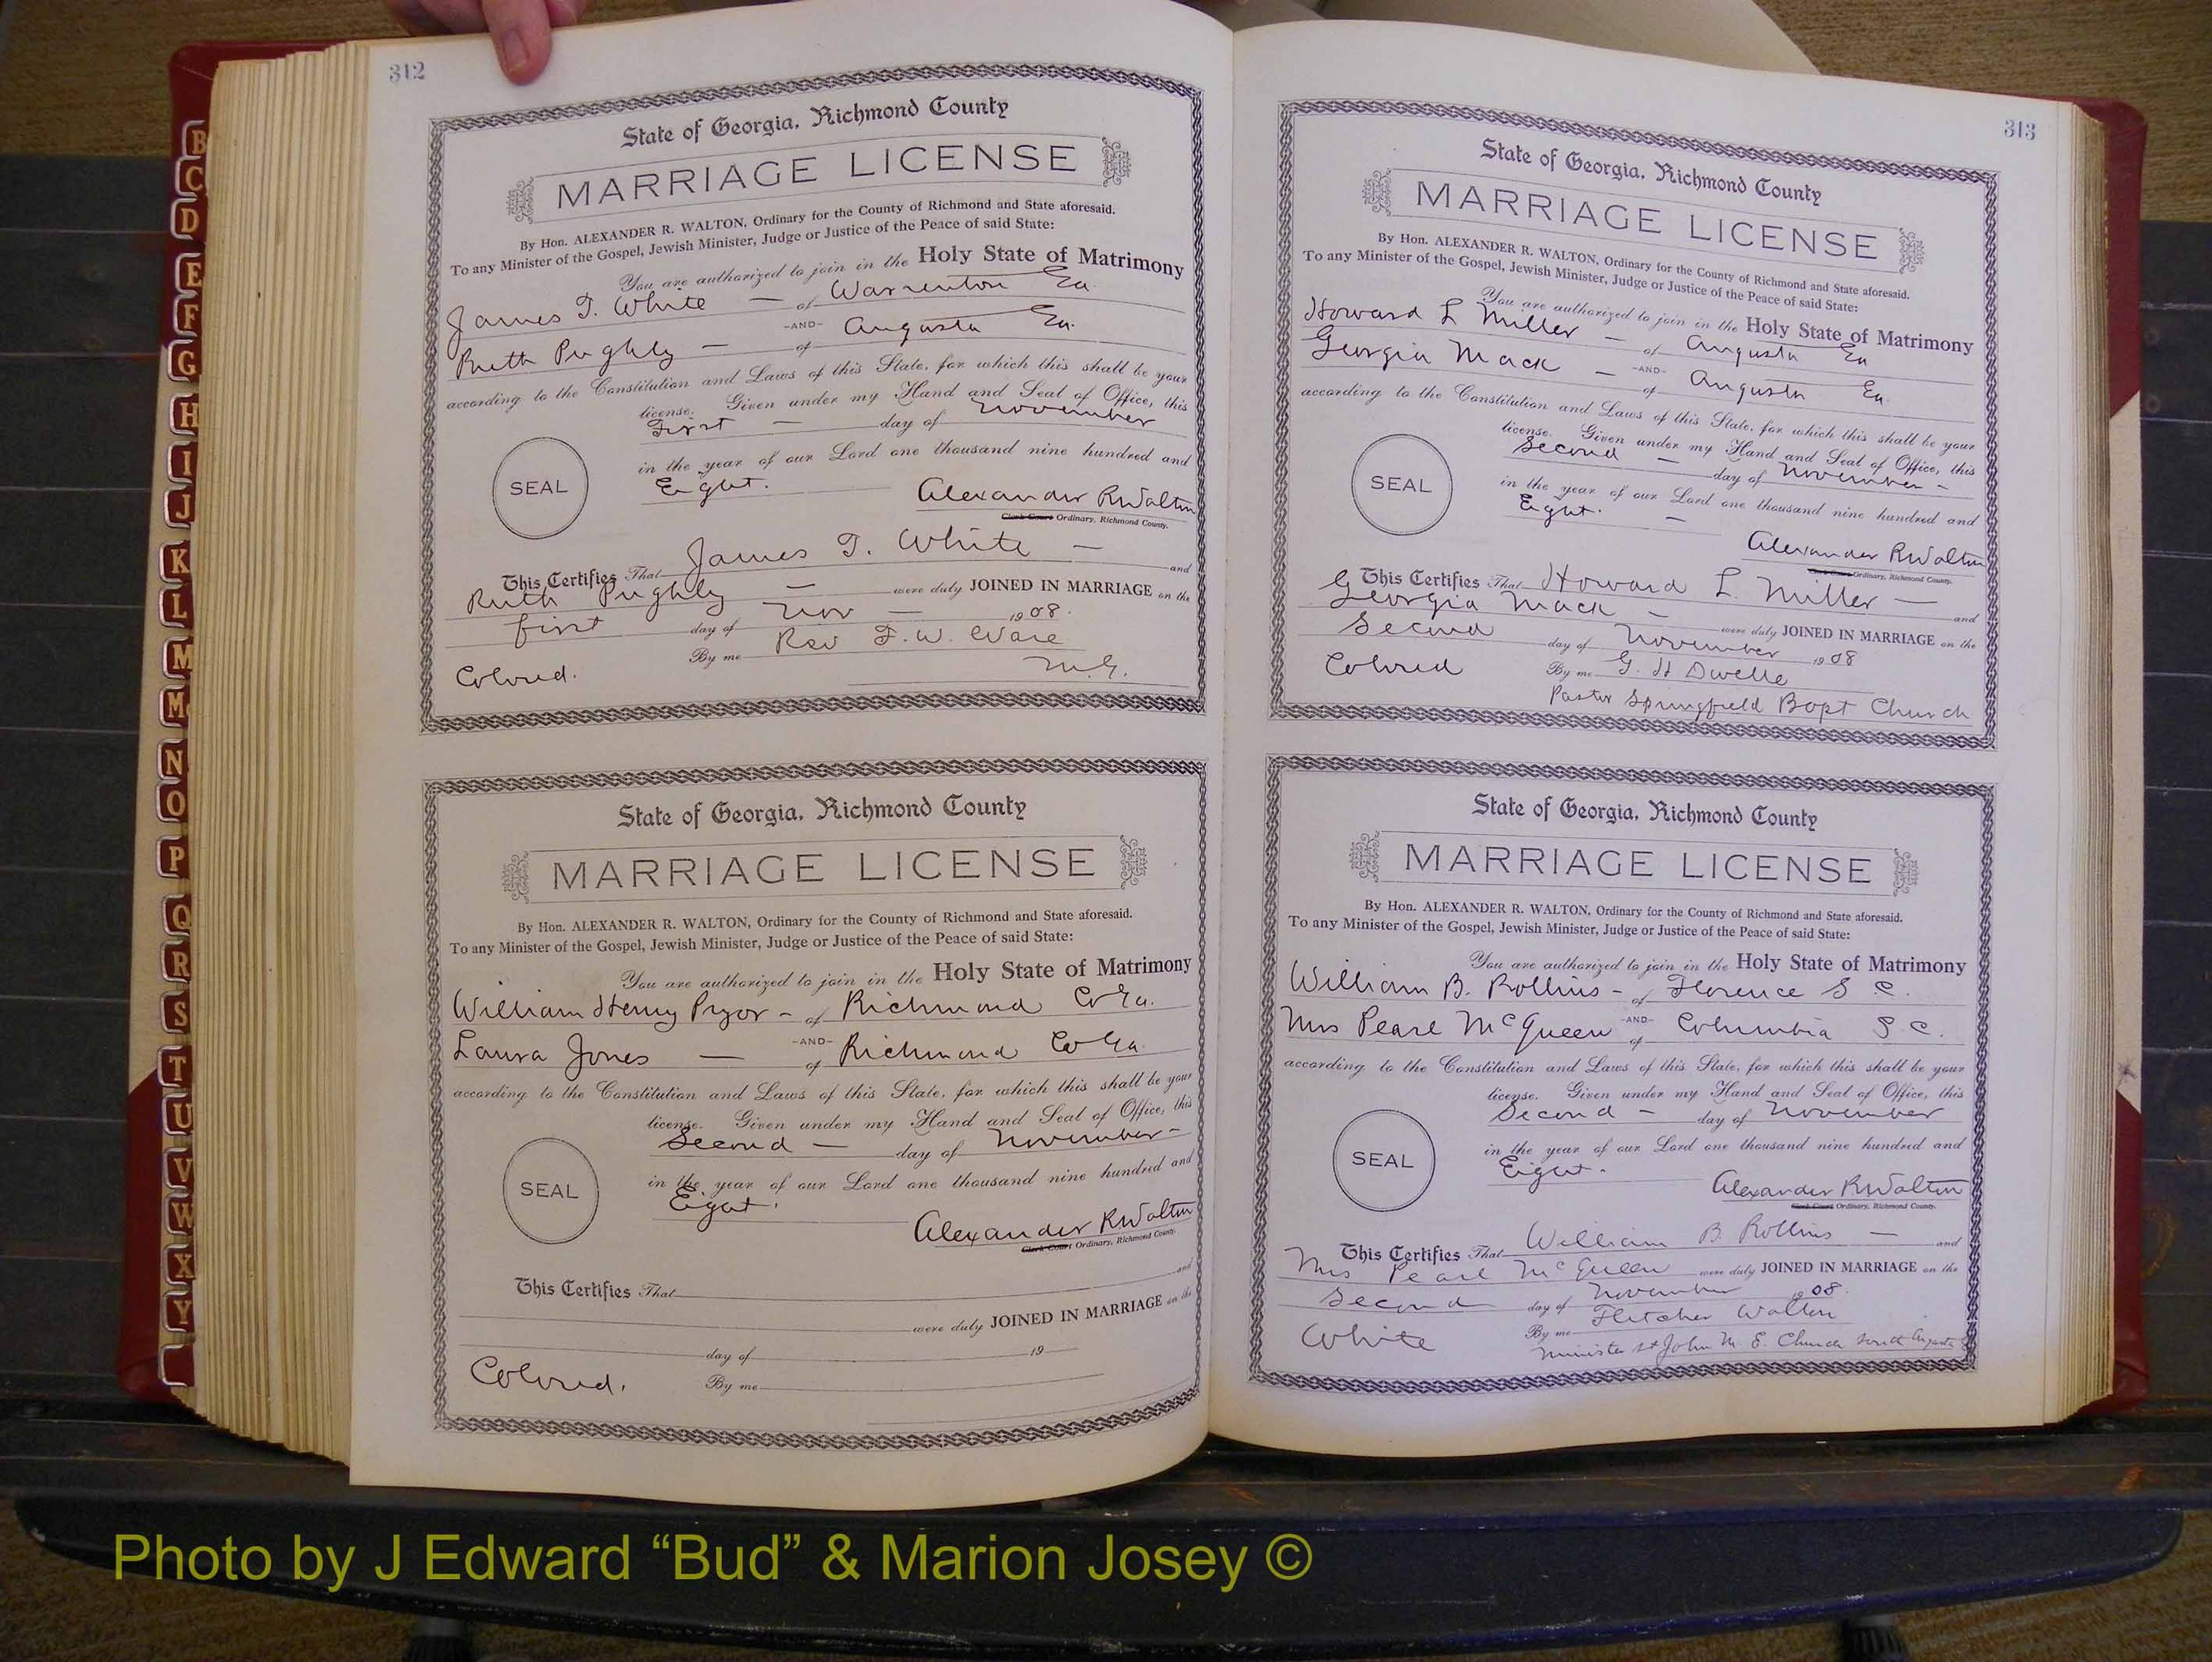 312
State of Georgia, Richmond County
MARRIAGE LICENSE
By Hon. ALEXANDER R. WALTON, Ordinary for the County of Richmond and State aforesaid.
To any Minister of the Gospel, Jewish Minister, Judge or Justice of the Peace of said State:
You are authorized to join in the Holy State of Matrimony
James T. White — of Warrenton Ga.
-AND-
Ruth Pughly — of Augusta Ga.
according to the Constitution and Laws of this State, for which this shall be your
license. Given under my Hand and Seal of Office, this
First — day of November
in the year of our Lord one thousand nine hundred and
Eight.
SEAL
Alexander R Walton
Clerk Court Ordinary, Richmond County.
This Certifies That James T. White — and
Ruth Pughly — were duly JOINED IN MARRIAGE on the
first day of Nov — 1908.
By me Rev F. W. Ware
Colored. M.G.
State of Georgia, Richmond County
MARRIAGE LICENSE
By Hon. ALEXANDER R. WALTON, Ordinary for the County of Richmond and State aforesaid.
To any Minister of the Gospel, Jewish Minister, Judge or Justice of the Peace of said State:
You are authorized to join in the Holy State of Matrimony
William Henry Pryor - of Richmond Co Ga.
-AND-
Laura Jones — of Richmond Co Ga.
according to the Constitution and Laws of this State, for which this shall be your
license. Given under my Hand and Seal of Office, this
Second — day of November -
in the year of our Lord one thousand nine hundred and
Eight.
SEAL
Alexander R Walton
Clerk Court Ordinary, Richmond County.
This Certifies That and
were duly JOINED IN MARRIAGE on the
day of 19
Colored. By me
313
State of Georgia, Richmond County
MARRIAGE LICENSE
By Hon. ALEXANDER R. WALTON, Ordinary for the County of Richmond and State aforesaid.
To any Minister of the Gospel, Jewish Minister, Judge or Justice of the Peace of said State:
You are authorized to join in the Holy State of Matrimony
Howard L Miller — of Augusta Ga
-AND-
Georgia Mack — of Augusta Ga.
according to the Constitution and Laws of this State, for which this shall be your
license. Given under my Hand and Seal of Office, this
Second — day of November -
in the year of our Lord one thousand nine hundred and
Eight. —
SEAL
Alexander R Walton
Clerk Court Ordinary, Richmond County.
This Certifies That Howard L. Miller — and
Georgia Mack — were duly JOINED IN MARRIAGE on the
Second day of November 1908
Colored By me G. H Dwelle
Pastor Springfield Bapt Church
State of Georgia, Richmond County
MARRIAGE LICENSE
By Hon. ALEXANDER R. WALTON, Ordinary for the County of Richmond and State aforesaid.
To any Minister of the Gospel, Jewish Minister, Judge or Justice of the Peace of said State:
You are authorized to join in the Holy State of Matrimony
William B. Rollins - of Florence S C.
-AND-
Mrs Pearl McQueen of Columbia S C.
according to the Constitution and Laws of this State, for which this shall be your
license. Given under my Hand and Seal of Office, this
Second - day of November
in the year of our Lord one thousand nine hundred and
Eight.
SEAL
Alexander R Walton
Clerk Court Ordinary, Richmond County.
This Certifies That William B. Rollins — and
Mrs Pearl McQueen were duly JOINED IN MARRIAGE on the
Second day of November 1908.
White By me Fletcher Walton
Minister St John M. E. Church South Augusta
B
C
D
E
F
G
H
I
J
K
L
M
M
N
O
P
Q
R
S
T
U
V
W
X
Y
Photo by J Edward “Bud” & Marion Josey ©